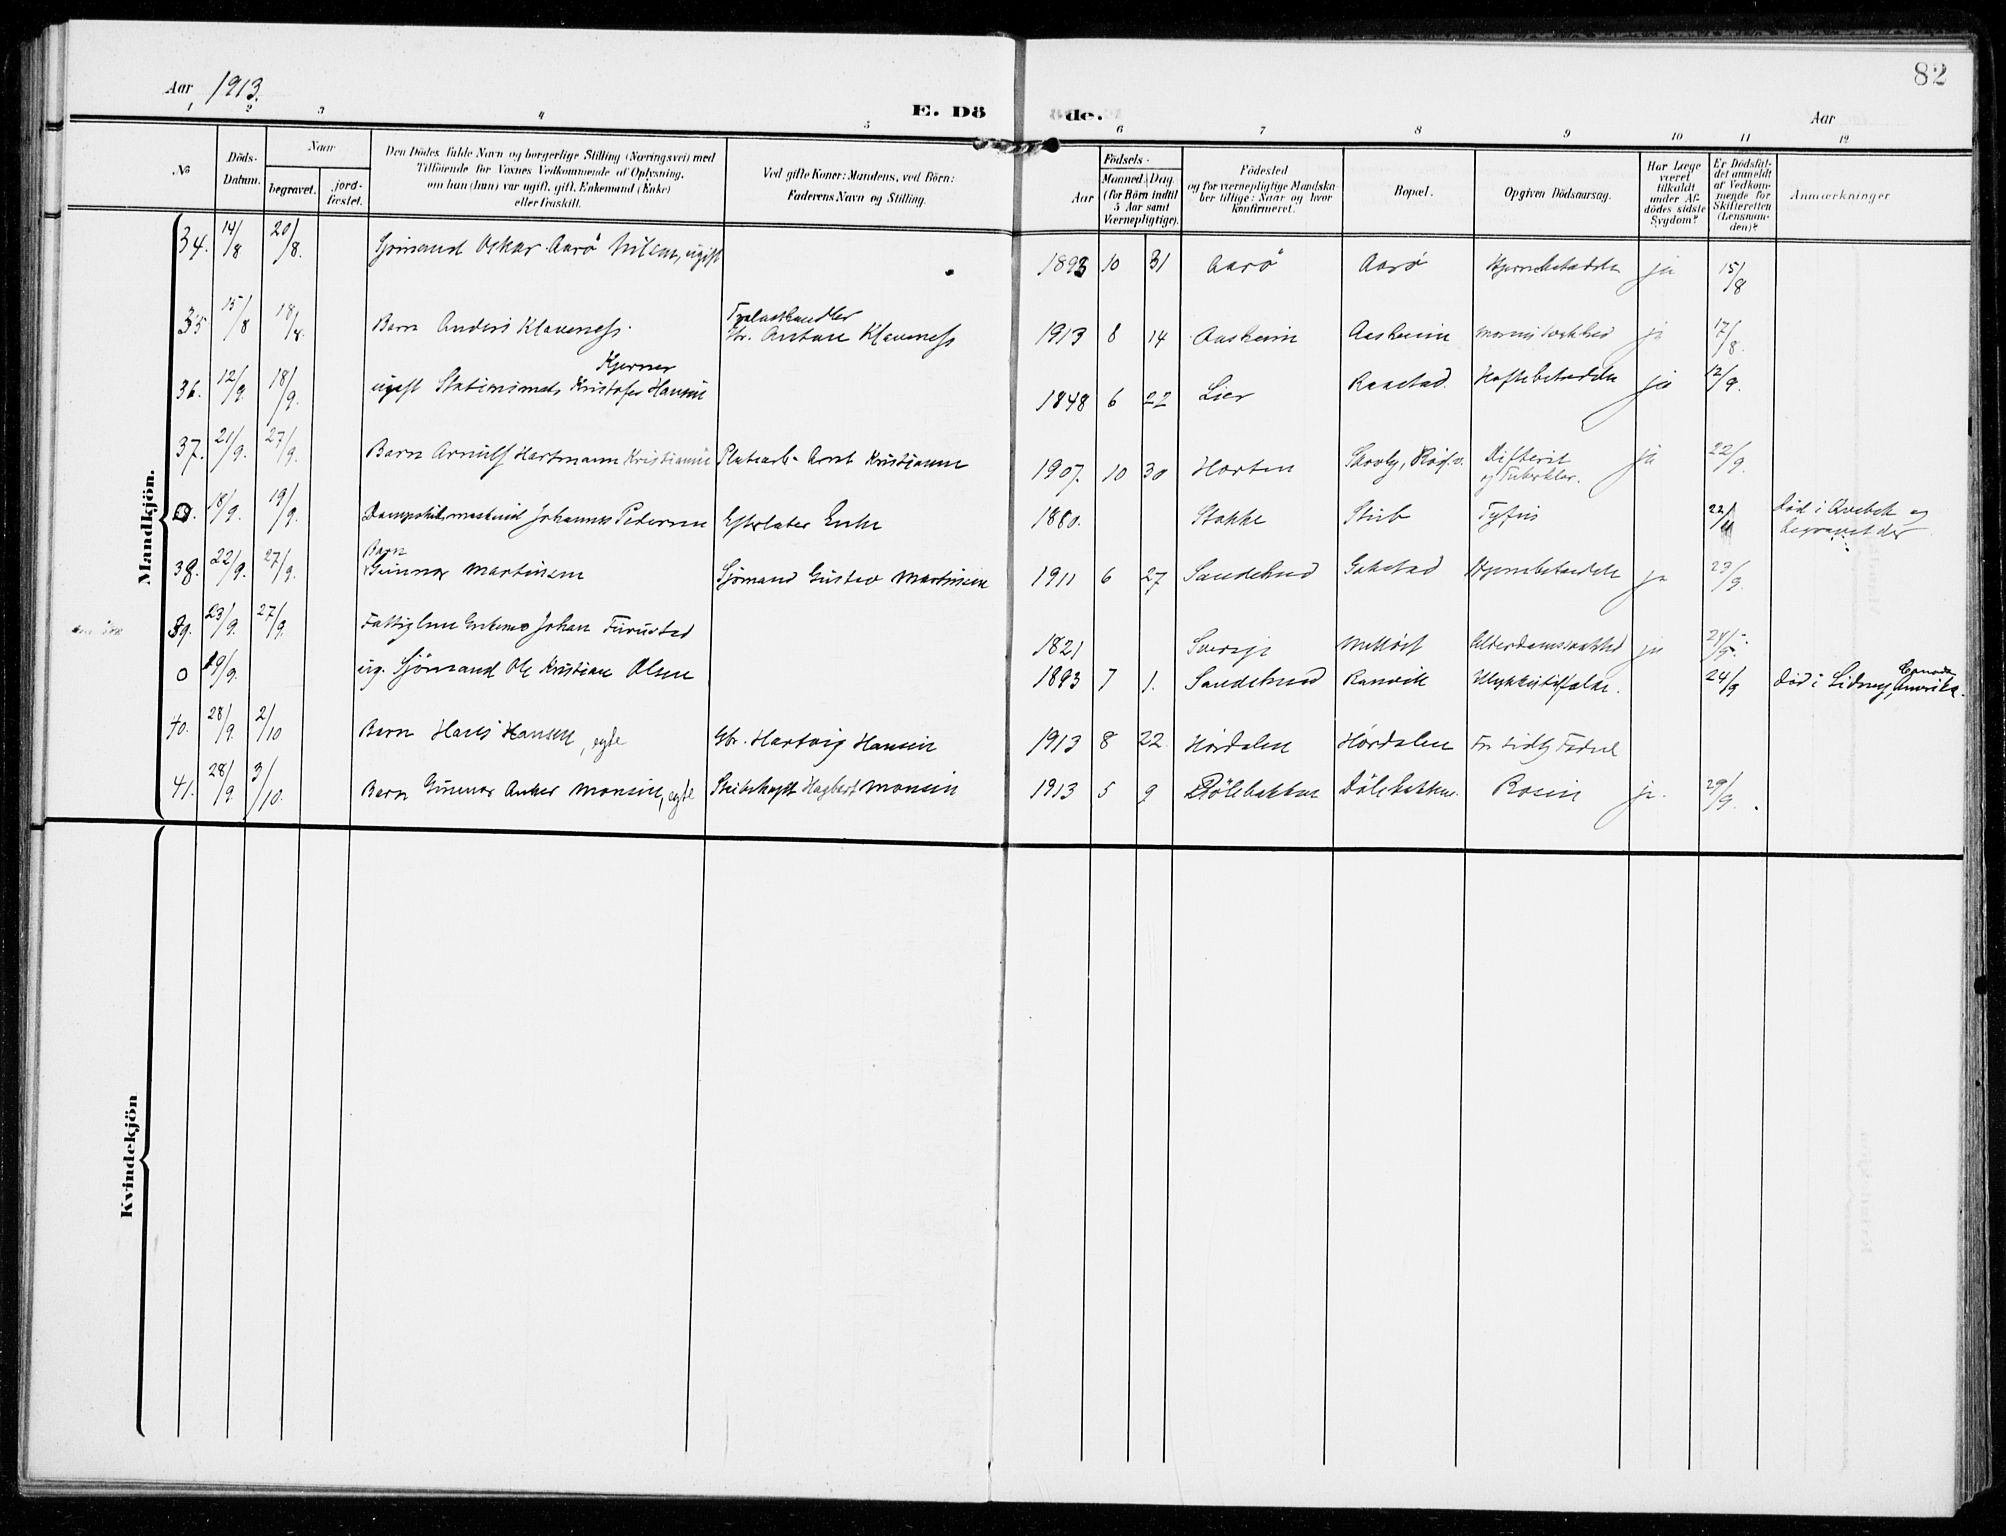 82
Aar 1913.
E. Döde.
Aar
1 2 3 4 5 6 7 8 9 10 11 12
No
Döds-Datum.
Naar
begravet.
jord-fæstet.
Den Dödes fulde Navn og borgerlige Stilling (Næringsvei) med
Tilföiende for Voxnes Vedkommende af Oplysning,
om han (hun) var ugift, gift, Enkemand (Enke)
eller fraskilt.
Ved gifte Koner: Mandens, ved Börn:
Faderens Navn og Stilling.
Födsels-
Aar
Maaned. Dag
(for Börn indtil
5 Aar samt
Værnepligtige).
Födested
og for værnepligtige Mandska-
ber tillige: Naar og hvor
konfirmeret.
Bopæl.
Opgiven Dödsaarsag.
Har Læge
været
tilkaldt
under Af-
dödes sidste
Sygdom?
Er Dödsfal-
det anmeldt
af Vedkom-
mende for
Skifteretten
(Lensman-
den)?
Anmærkninger
Mandkjön.
34. 14/8 20/8. Sjömand Oskar Aarö Nilsen, ugift 1893 10 31 Aarö Aarö ja 15/8
Trælasthandler
35 15/8 18/8. Barn Anders Klaveness. Gbr. Anton Klaveness 1913 8 14 Aasheim Aasheim ja 17/8.
36. 12/9 18/9. ugift Kristofer Hansen 1848 6 22 Lier Raastad. ja 12/9.
37. 21/9. 27/9. Barn Arnulf Hartmann Kristiansen Platearb. Arnt Kristiansen 1907. 10 30 Horten Difterit ja 22/9.
og Tuberkler.
0. 18/9. 19/9. Johannes Pedersen Efterlater Enke 1880. Stokke Stub Tyfus Död i og
begravet der
Barn
38. 22/9. 27/9. Gunnar Martinsen Sjömand Gustav Martinsen 1911 6 27 Sandeherred Gokstad Hjernebetændelse ja 23/9.
39. 23/9. 27/9. Johan Furustad 1821 Sverige Alderdomssvakhed ja
0 29/9. ug. Sjömand Ole Kristian Olsen 1893 7 1. Sandeherred Ranvik Ulykkestilfælde. 24/9 Död i Sidney, Amerika.
40. 28/9. 2/10 Barn Hans Hansen, egte Gbr. Hartvig Hansen 1913 8 22. Hördalen Hördalen For tidlig Födsel
41. 28/9. 3/10. Barn Gunnar Anker Monsen, egte Skibskapt Hagbart Monsen 1913 5 9 Dölebakken Dölebakken. Rosen ja. 29/9.
Kvindekjön